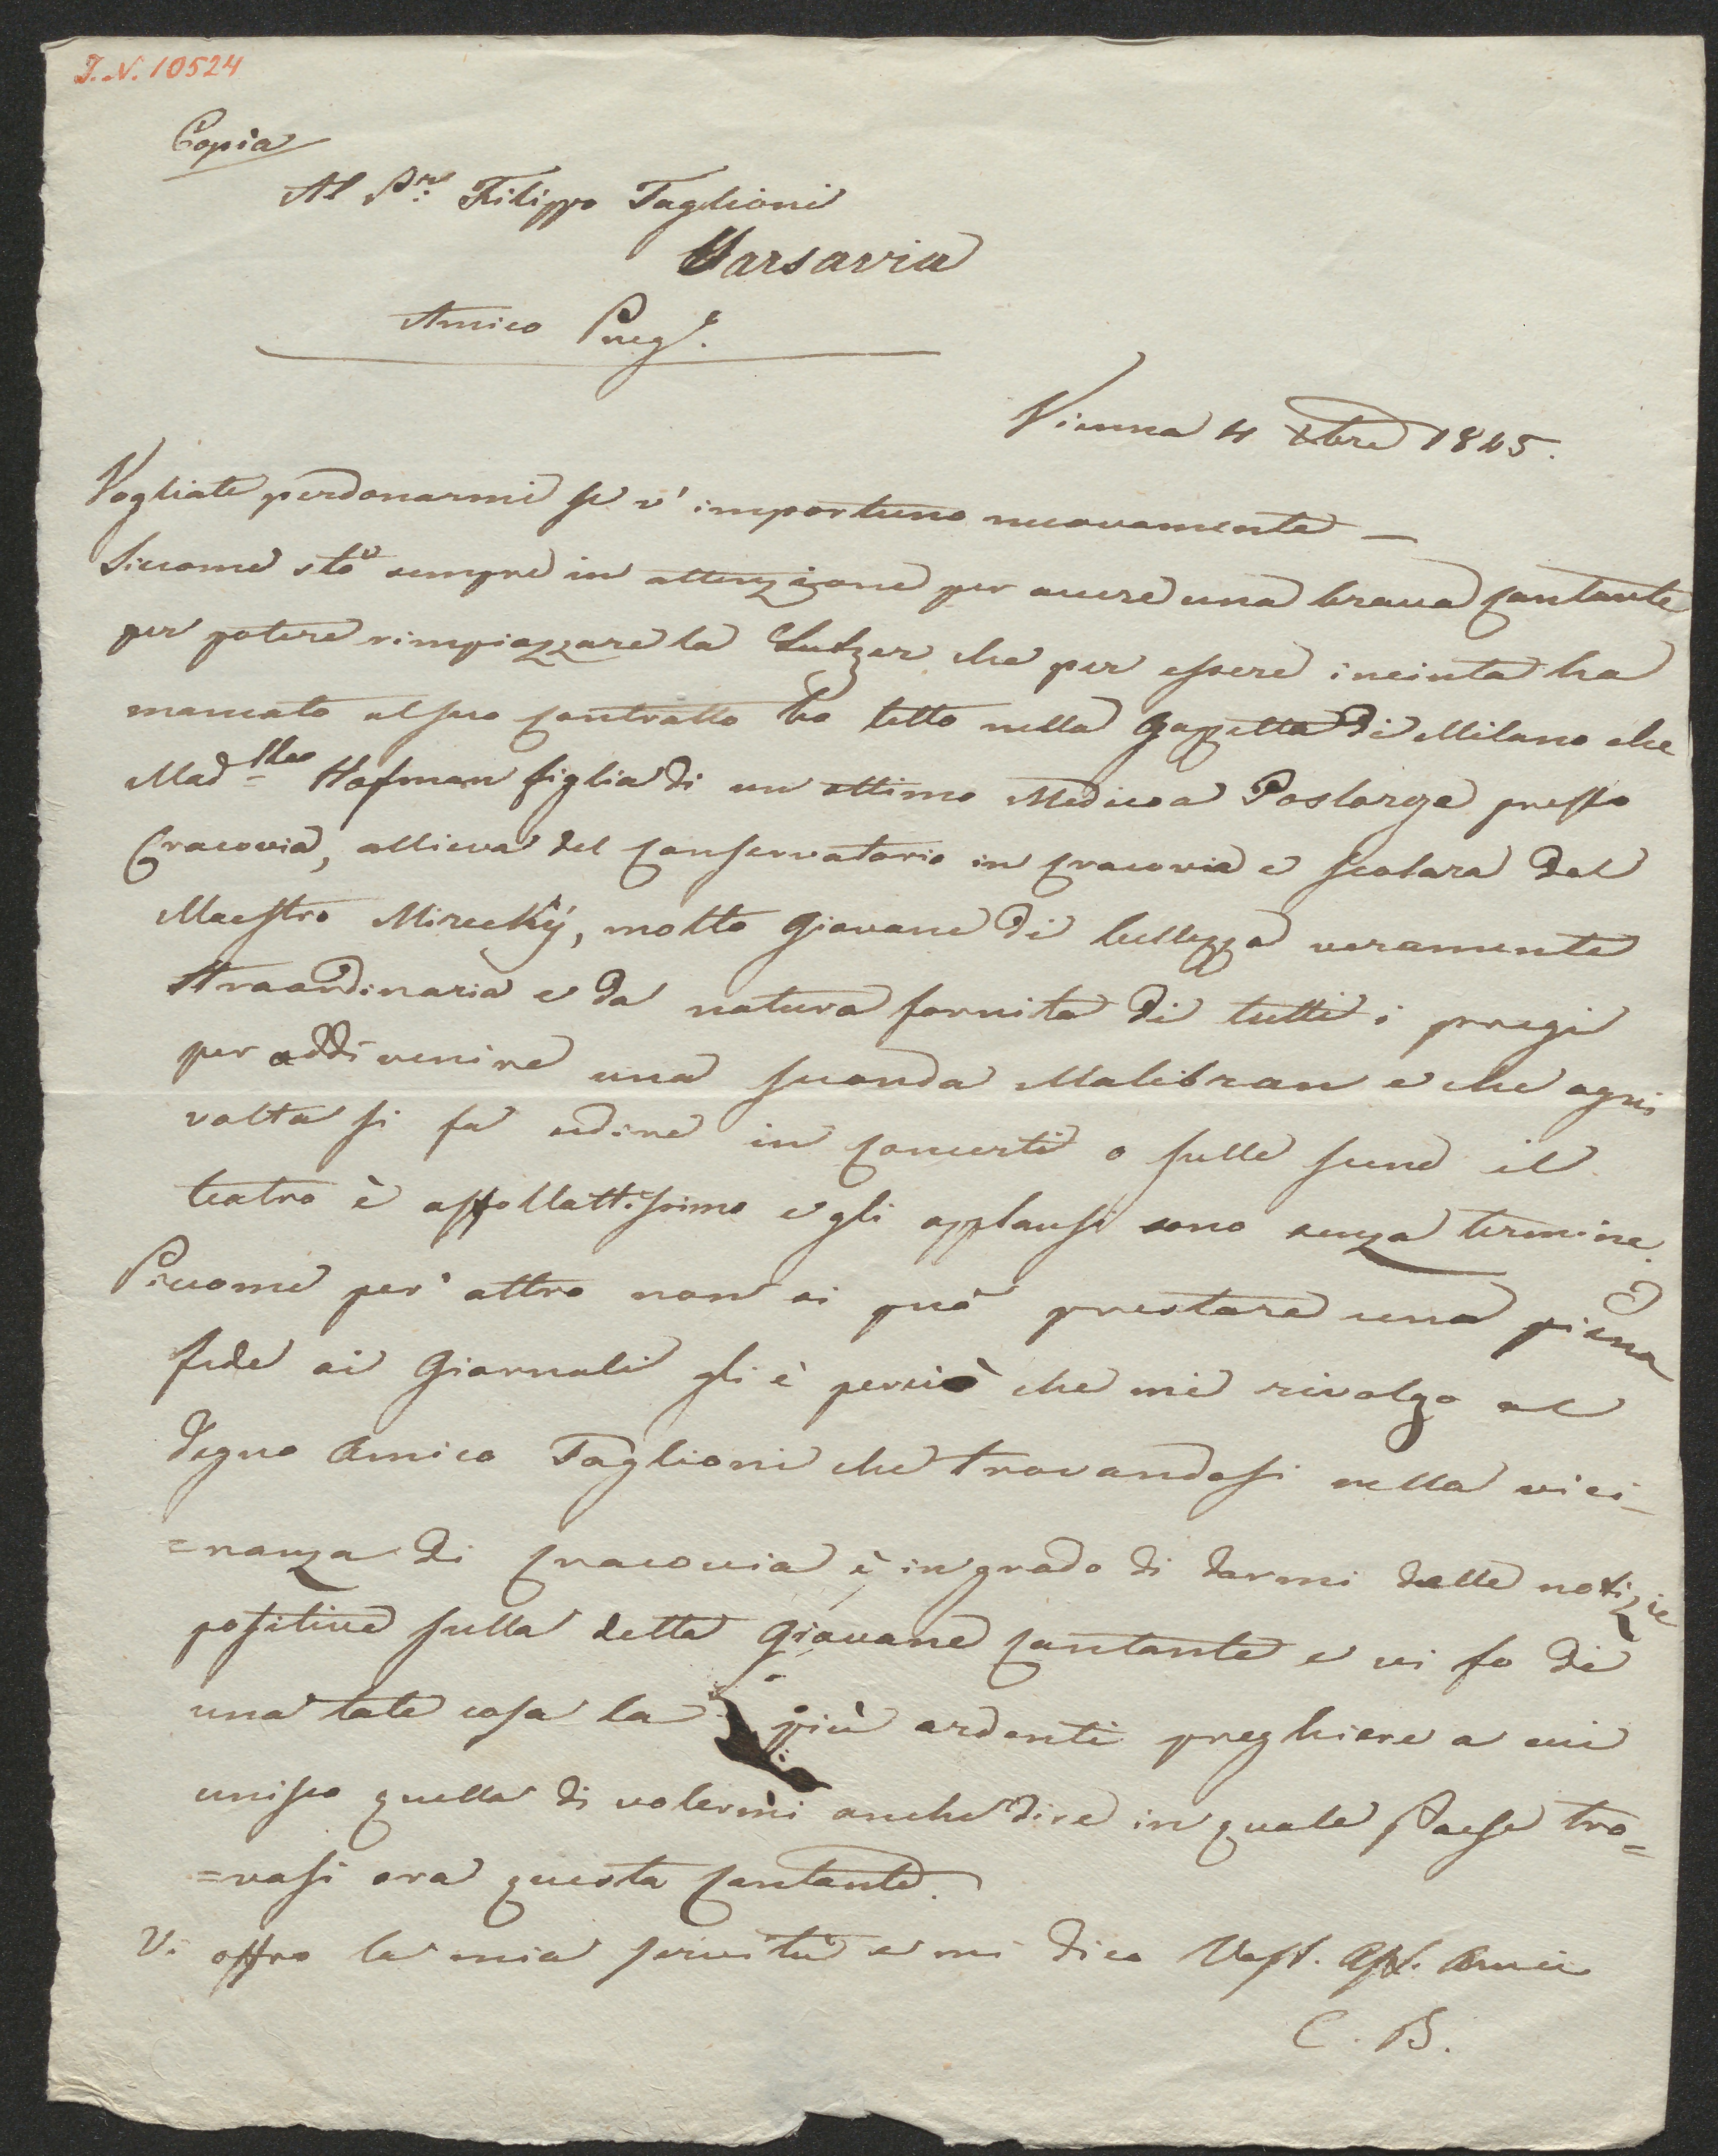 J. N. 10524
Copia
Al Sre. Filippo Taglioni
Varsavia
Amico Prege.
Vienna 4 Xbre 1845.
Vogliate perdonarmi se v' importuno nuovamente —
Siccome sto sempre in attenzione per avere una brava Cantante
per potere rimpiazzare la Lutzer che per essere incinta ha
mancato al suo Contratto ho letto nella Gazzetta di Milano che
Madlla Hofman figlia di un ottimo Medico a Poslorze presso
Cracovia, allieva del Conservatorio in Cracovia e Scolara del
Maestro Mirecky, molto Giovane di bellezza veramente
straordinaria e da natura fornita di tutti i preggi
per addivenire una seconda Malibran e che ogni
volta si fa udire in Concerti o sulle scene il
teatro è affollattissimo e gli applausi sono senza termine.
Siccome per altro non si può prestare una piena
fede ai Giornali gli è perciò che mi rivolgo al
degno Amico Taglioni che trovandosi nella vici-
=nanza di Cracovia è in grado di darmi delle notizie
positive sulla detta Giovane Cantante e vi fo di
una tale cosa la più ardenti preghiere a cui
unisco quella di volermi anche dire in quale Paese tro=
=vasi ora questa Cantante.
Vi offro la mia servitù e mi dico Vost. Aff. Amico
C. B.